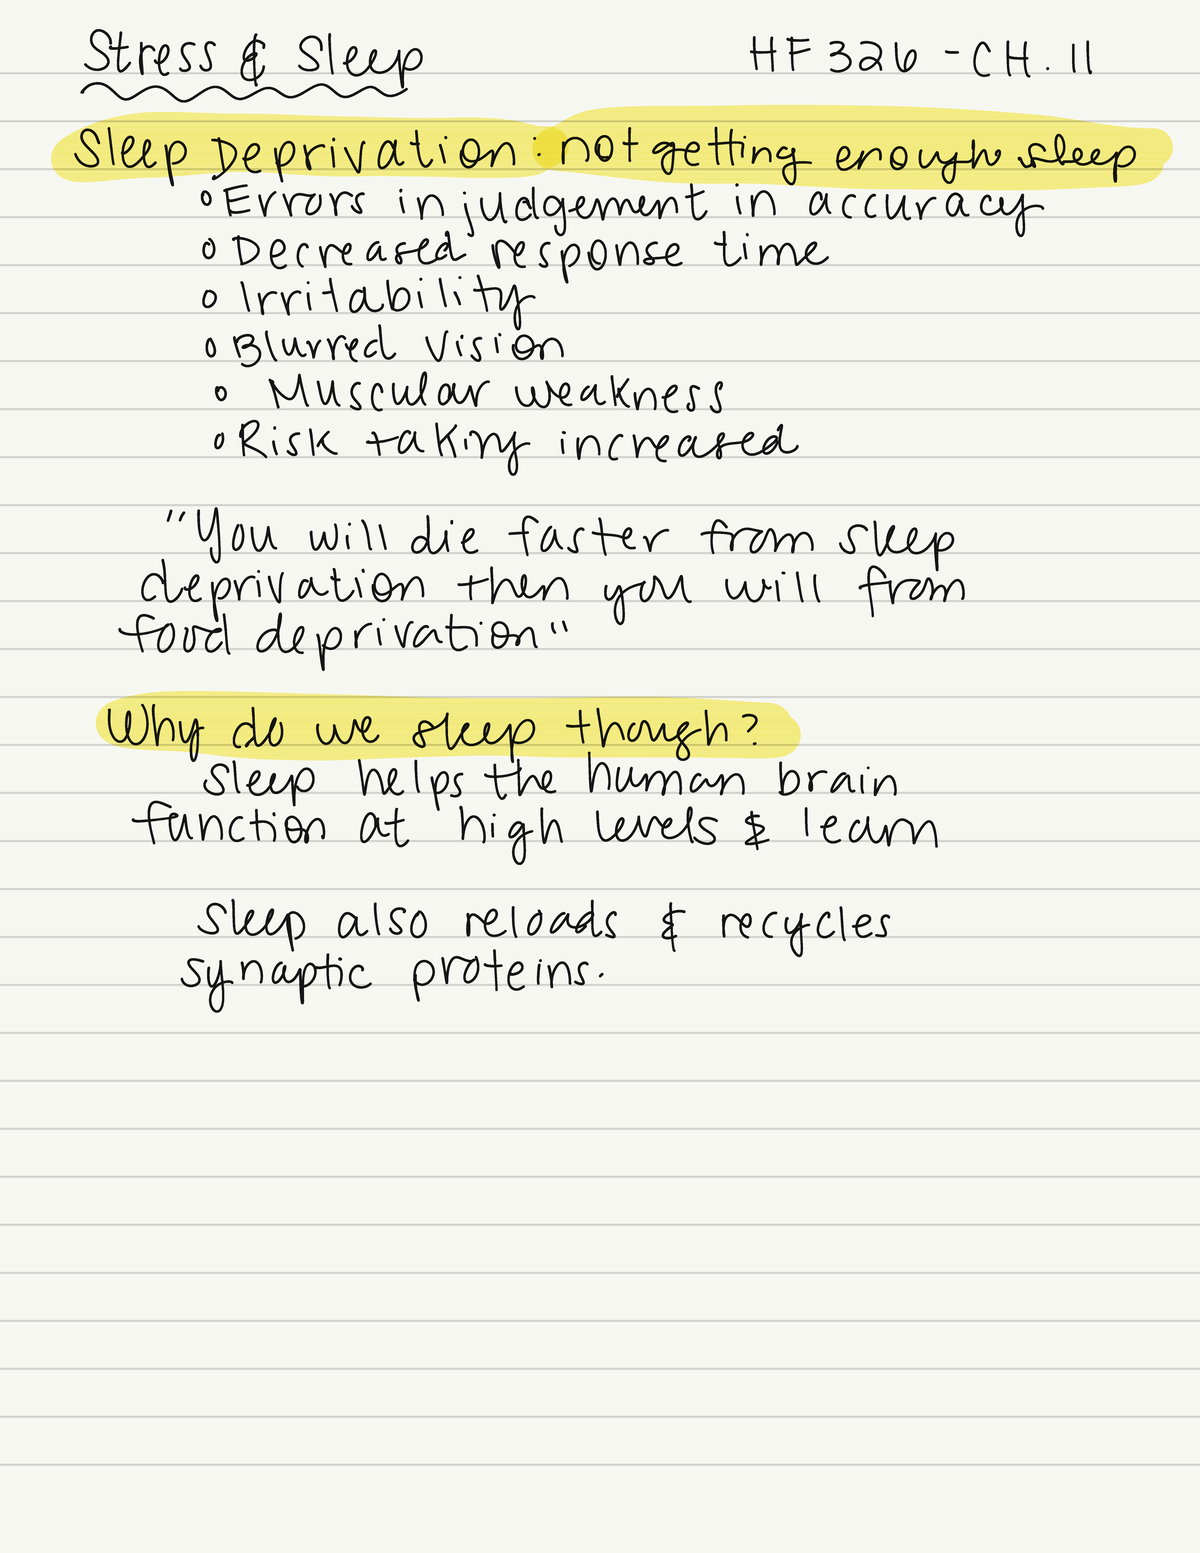 Stress & Sleep HF 326 - CH. 11
Sleep Deprivation: not getting enough sleep
◦ Errors in judgement in accuracy
◦ Decreased response time
◦ Irritability
◦ Blurred vision
◦ Muscular weakness
◦ Risk taking increased
"You will die faster from sleep
deprivation then you will from
food deprivation"
Why do we sleep though?
Sleep helps the human brain
function at high levels & learn
Sleep also reloads & recycles
synaptic proteins.